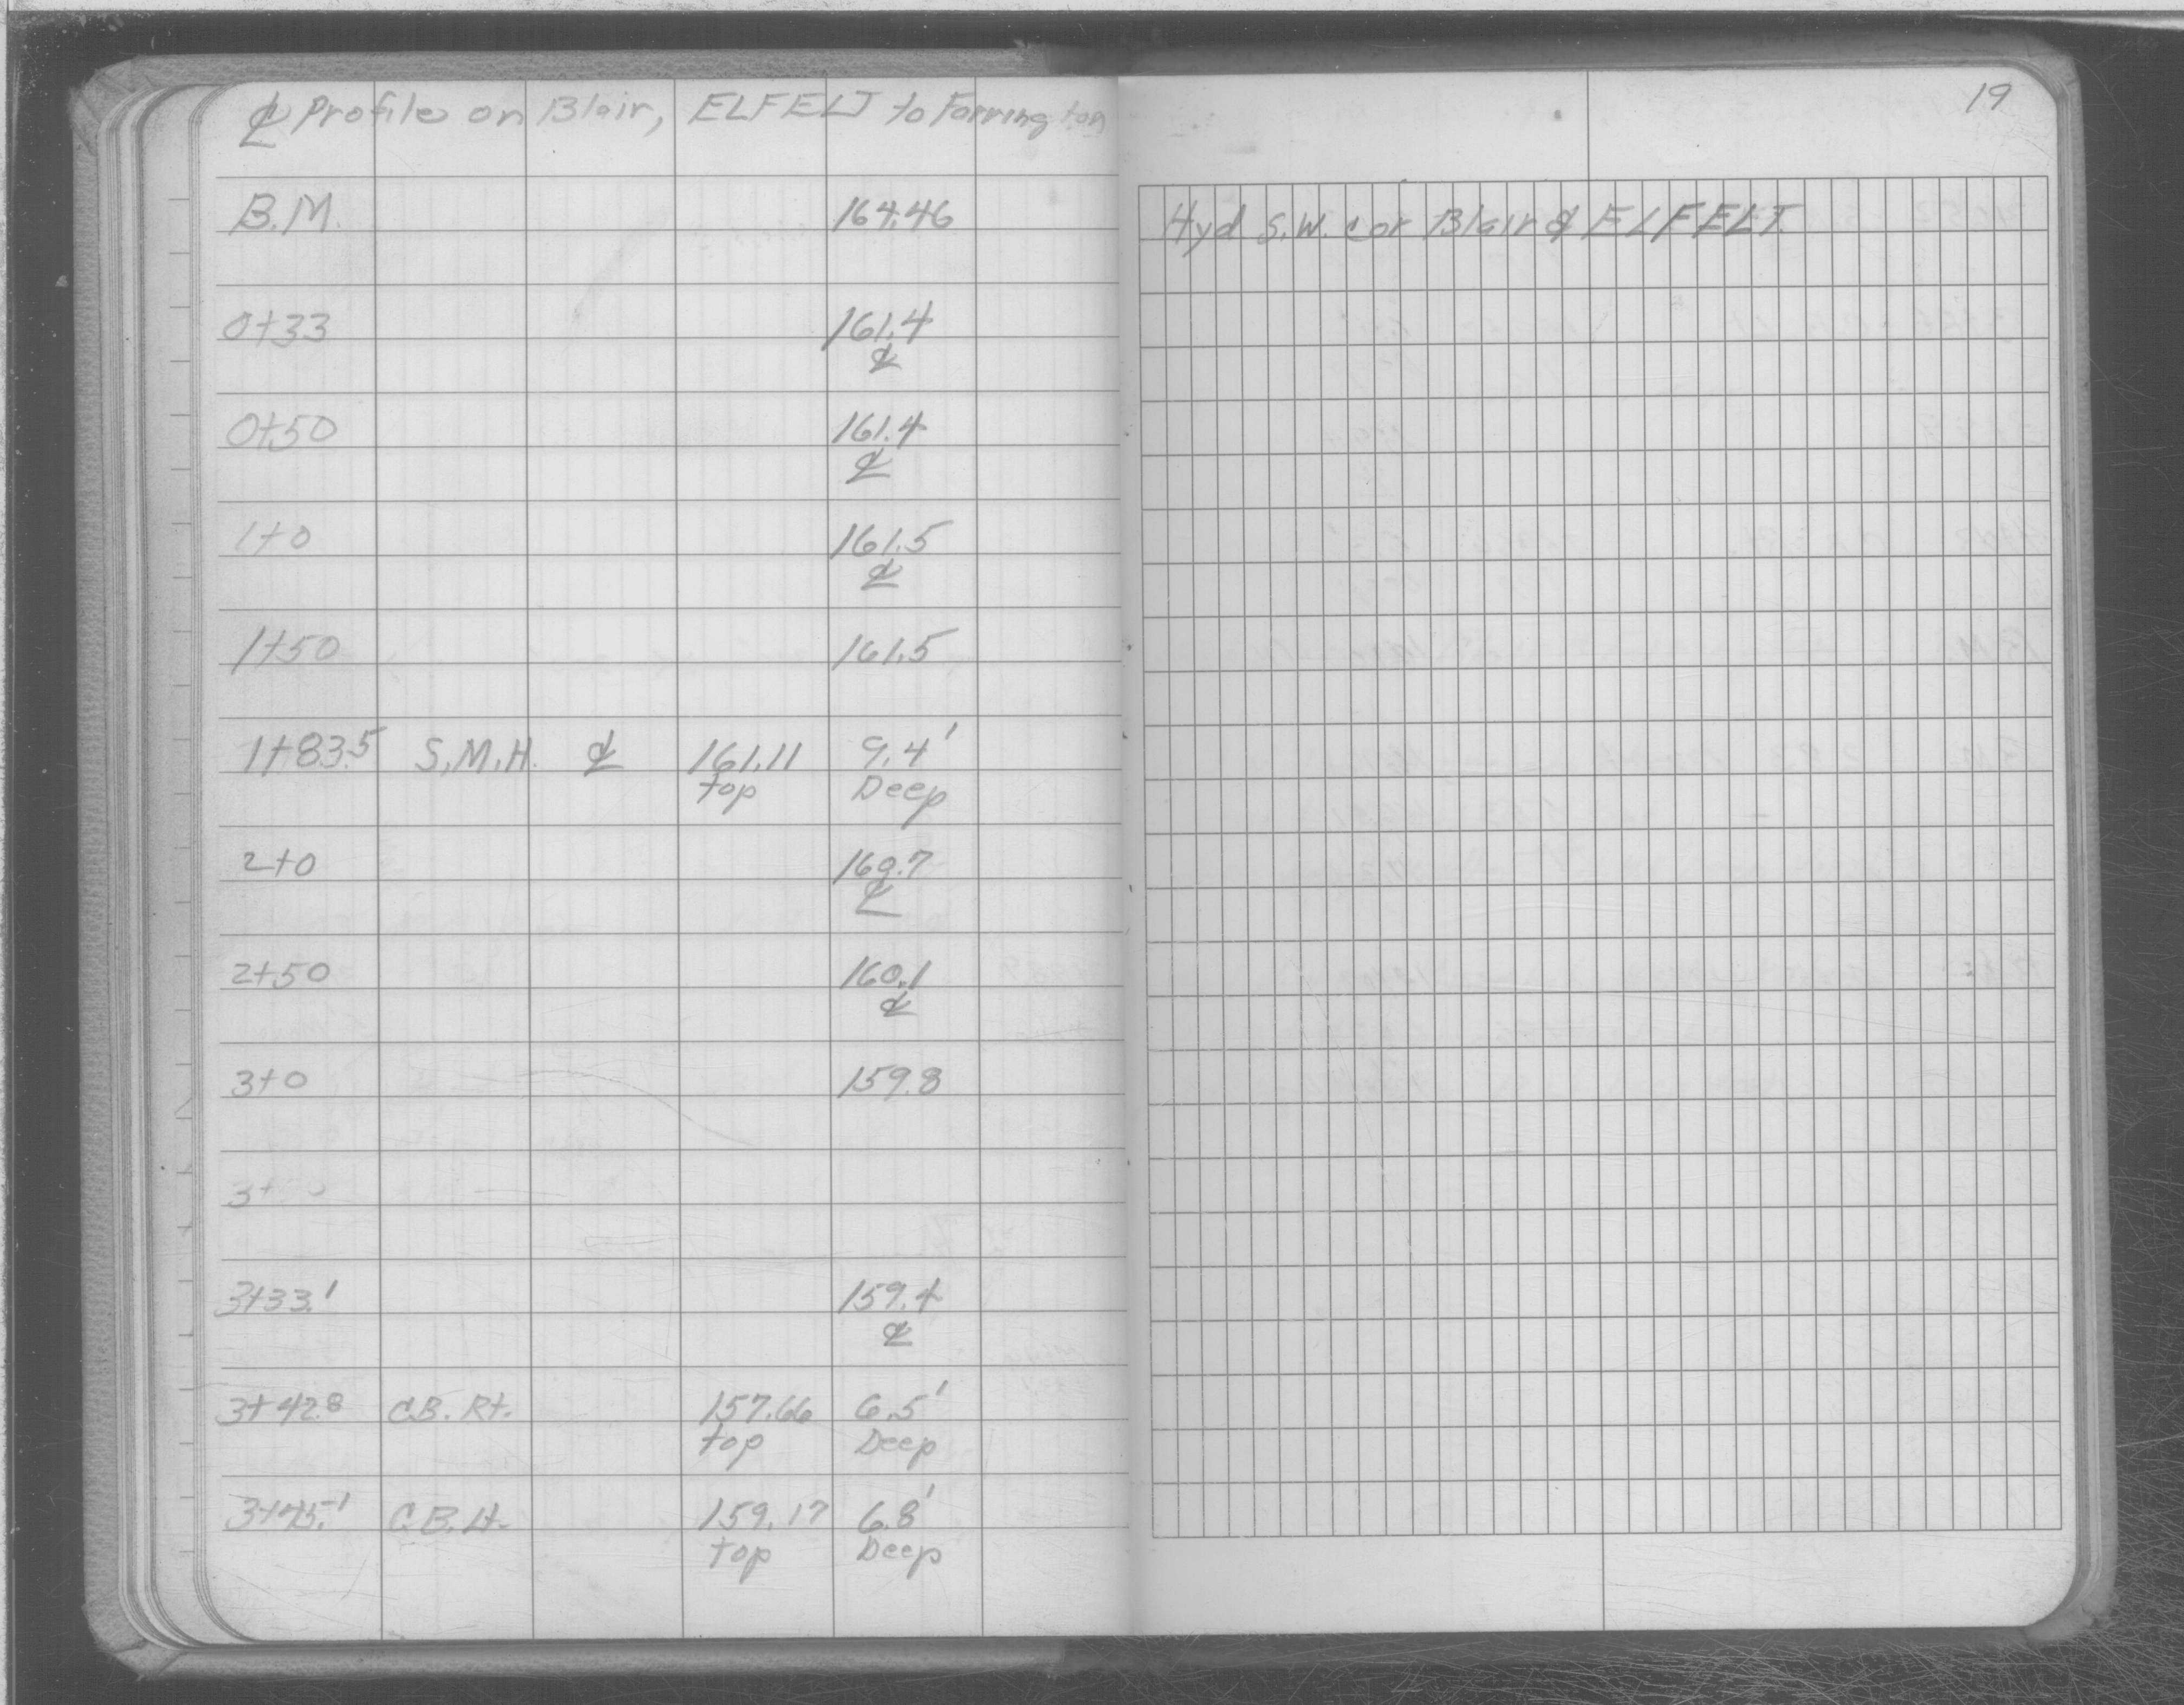 ℄ Profile on Blair, ELFELT to Farrington
19
B.M. 164.46 Hyd S.W. cor Blair & ELFELT.
0+33 161.4
℄
0+50 161.4
℄
1+0 161.5
℄
1+50 161.5
1+83.5 S.M.H. ℄ 161.11 9.4'
top Deep
2+0 160.7
℄
2+50 160.1
℄
3+0 159.8
3+33.1 159.4
℄
3+42.8 C.B. Rt. 157.66 6.5'
top Deep
C.B. Lt. 159.17 6.8'
top Deep